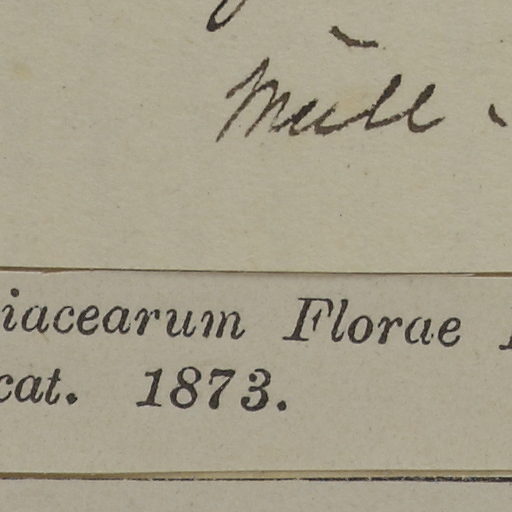 Müll.
iacearum Florae
cat. 1873.